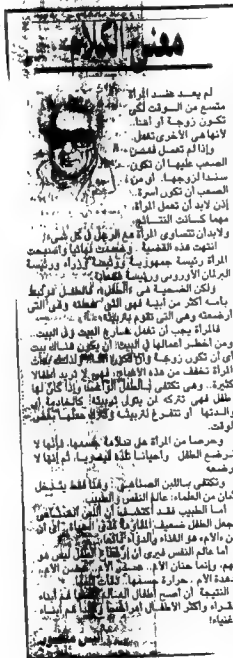 معنى الكلام
لم يعد عند المرأة
متسع من الوقت لكى
تكون زوجة أو أما.
لأنها هى الأخرى تعمل.
وإذا لم تعمل فمن
الصعب عليها أن تكون
سندا لزوجها. أو من
الصعب أن تكون أسرة.
إذن لابد أن تعمل المرأة.
مهما كانت النتائج.
ولابد أن تتساوى المرأة مع الرجل فى كل شىء!
انتهت هذه القضية نهائيا وأصبحت
المرأة رئيسة جمهورية ورئيسة وزراء ورئيسة
البرلمان الأوروبى ورئيسة
ولكن الضحية هى الطفل. فالطفل مرتبط
بأمه أكثر من أبيه فهى التى حملته وهى التى
أرضعته وهى التى تقوم بتربيته
فالمرأة يجب أن تعمل خارج البيت وفى البيت.
ومن أخطر أعمالها فى البيت: أن يكون هناك بيت
أى أن تكون زوجة وأن تكون
المرأة تخفف من هذه الأعباء. فهى لا تريد أطفالا
كثيرة.. وهى تكتفى بالطفل الواحد وإذا كان لها
طفل فهى تتركه لمن يتولى تربيته: كالخادمة أو
والدتها أو تتفرغ لتربيته
الوقت.
وحرصا من المرأة على سلامة جسمها، فإنها لا
ترضع الطفل وأحيانا تلده قيصريا. ثم إنها لا
ترضعه
وتكتفى باللبن الصناعى.. وهنا فقط يتدخل
اثنان من العلماء: عالم النفس والطبيب.
أما الطبيب فقد اكتشف أن اللبن الصناعى
يجعل الطفل ضعيف المقاومة أى أن
لبن الأم، هو الغذاء والدواء
أما عالم النفس فيرى أن الطفل ليس هو
المهم. وإنما حنان الأم.. صدر الأم حضن الأم.
معدة الأم. حرارة جسمها.
النتيجة أن أصبح أطفال العالم هم أبناء
الفقراء وأكثر الأطفال أمراضا هم أبناء
الأغنياء!
أنيس منصور